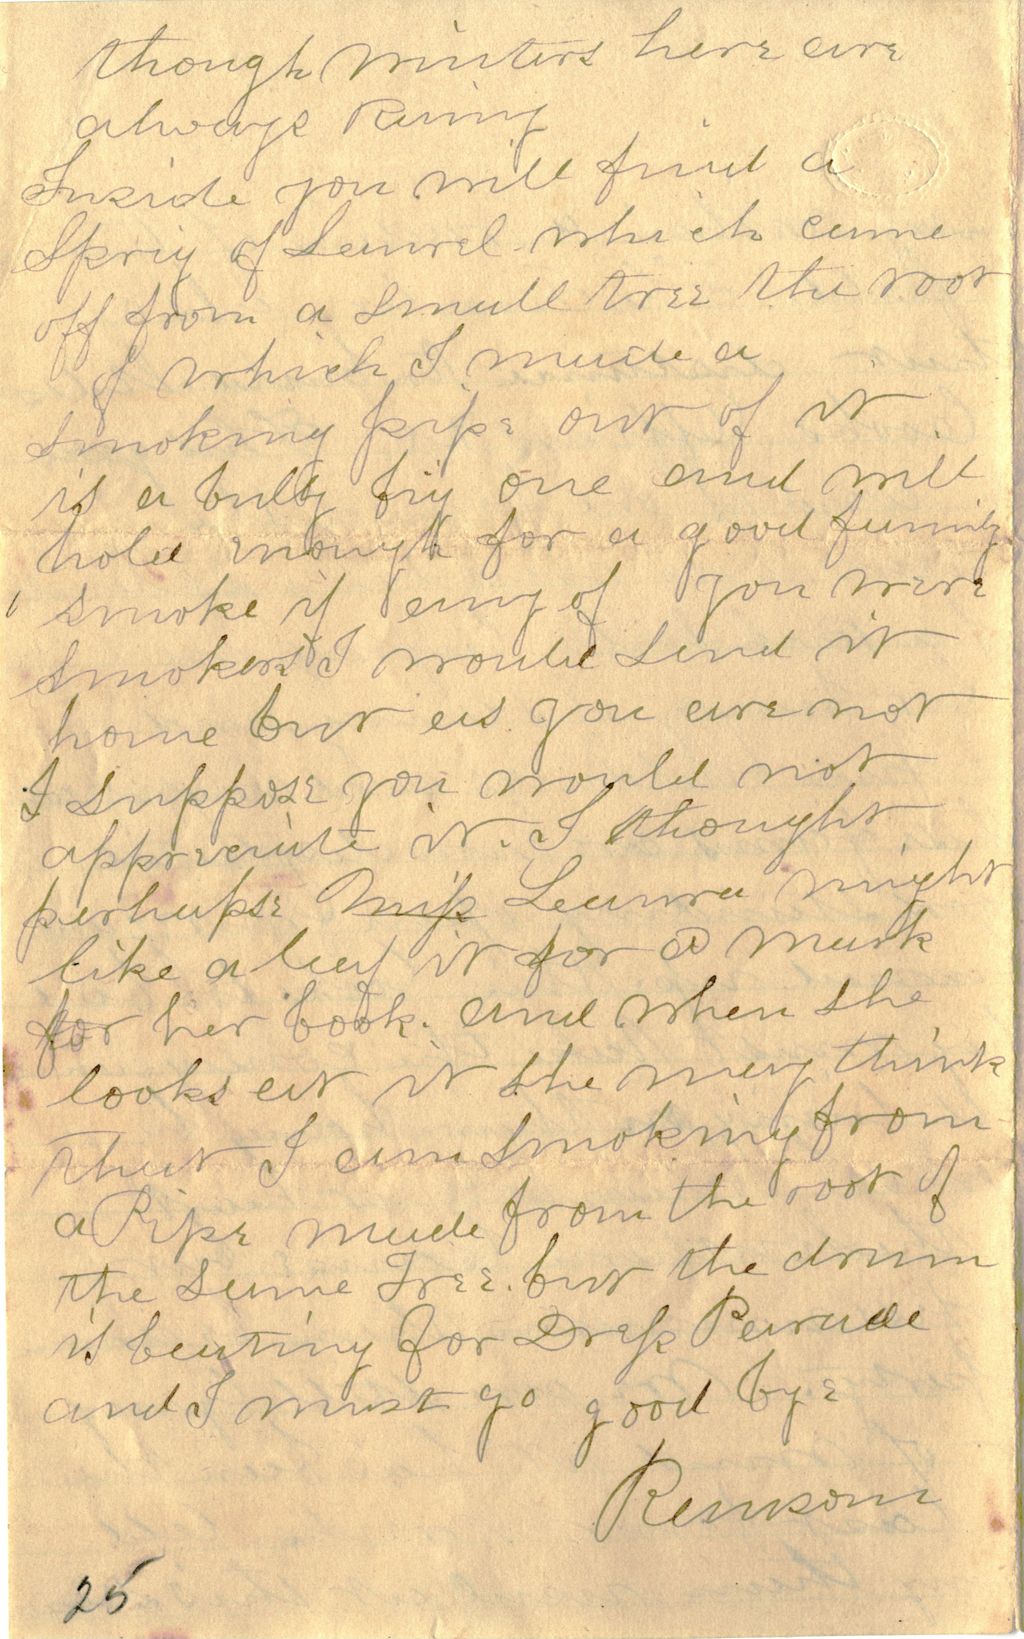 though winters here are
always Rainy
Inside you will find a
Sprig of Laurel which came
off from a small tree the root
of which I made a
smoking pipe out of it
is a bully big one and will
hold enough for a good family
smoke if any of you were
smokers I would send it
home but as you are not
I suppose you would not
appreciate it. I thought
perhapse Miss Laura might
like a leaf it for a mark
for her book. and when she
looks at it she may think
that I am smoking from
a Pipe made from the root of
the same Tree. but the drum
is beating for Dress Parade
and I must go good bye
Ransom
25